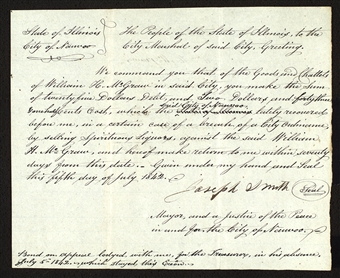 State of Illinois
City of Nauvoo
The People of the State of Illinois, to the
City Marshal of said City, Greeting.
We command you that of the Goods and Chattels
of William H. McGraw in said City, you make the sum
of twenty five Dollars Debt and Dollars and forty three
Cents Cost, which the said City of Nauvoo lately recovered
before me in a certain case of a breach of a City Ordinance,
by selling Spirituous Liquors, against the said William
H. McGraw, and hereof make return to me within seventy
days from this date. Given under my hand and Seal
this fifth day of July 1842.
Joseph Smith Seal
Mayor, and a Justice of the Peace
in and for the City of Nauvoo.
Bond on appeal lodged with me, for the Treasurer, in his absence,
July 5th 1842, which stayed this